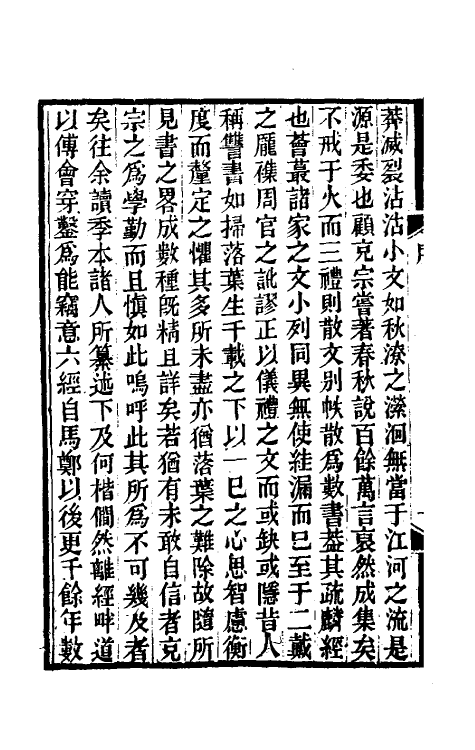 莽滅裂沾沾小文如秋潦之濴洄無當于江河之流是
源是委也顧充宗嘗著春秋說百餘萬言裒然成集矣
不戒于火而三禮則散文别帙散爲數書葢其疏麟經
也薈蕞諸家之文小列同異無使絓漏而巳至于二戴
之龎襍周官之訿謬正以儀禮之文而或缺或隱昔人
稱讐書如掃落葉生千載之下以一巳之心思智慮衡
度而釐定之懼其多所未盡亦猶落葉之難除故隨所
見書之畧成數種旣精且詳矣若猶有未敢自信者充
宗之爲學勤而且慎如此嗚呼此其所爲不可幾及者
矣往余讀季本諸人所纂述下及何楷僩然離經畔道
以傅會穿鑿爲能竊意六經自馬鄭以後更千餘年數
序